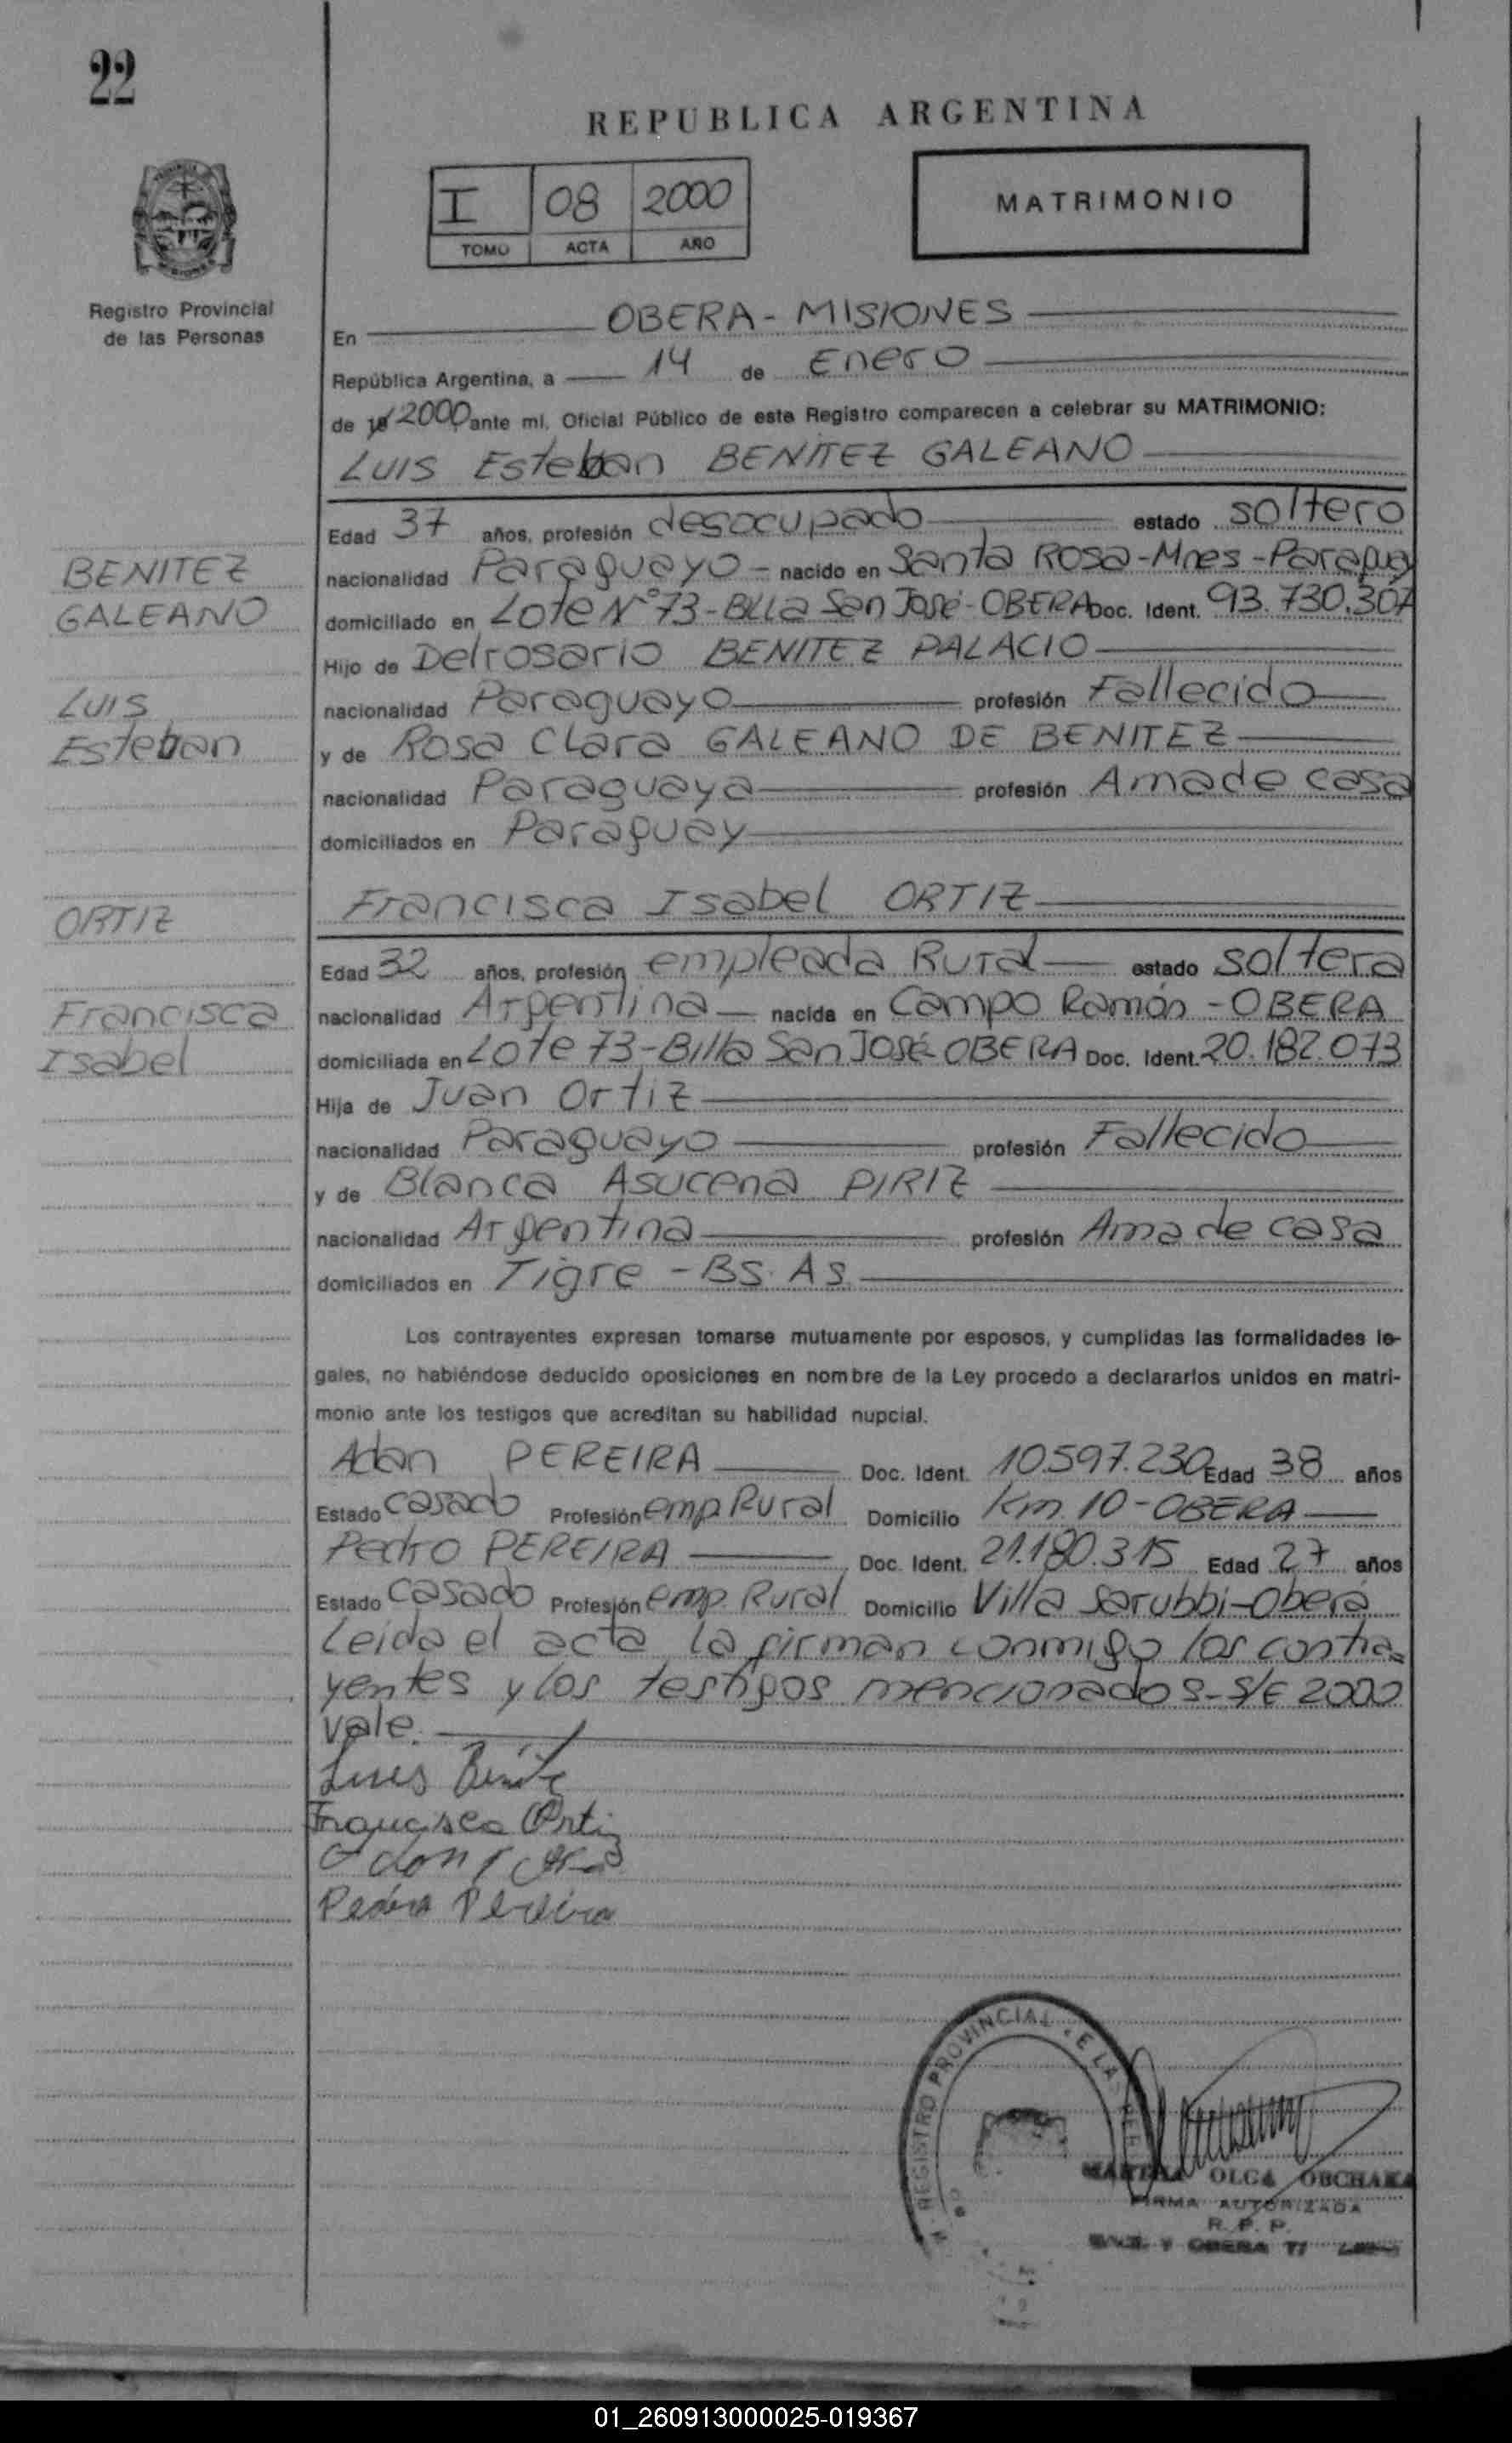 22
REPUBLICA ARGENTINA
I 08 2000
TOMO ACTA AÑO
MATRIMONIO
Registro Provincial
de las Personas
En OBERA - MISIONES
República Argentina, a 14 de Enero
de 2000 ante mi, Oficial Público de este Registro comparecen a celebrar su MATRIMONIO:
LUIS Esteban BENITEZ GALEANO
Edad 37 años, profesión desocupado estado soltero
BENITEZ
nacionalidad Paraguayo - nacido en Santa ROSA - Mnes - Paraguay
GALEANO
domiciliado en LOTE N° 73 - BLLa San José - OBERA Doc. Ident. 93.730.307
Hijo de Delrosario BENITEZ PALACIO
LUIS
nacionalidad Paraguayo profesión Fallecido
Esteban
y de Rosa Clara GALEANO DE BENITEZ
nacionalidad Paraguaya profesión Ama de casa
domiciliados en Paraguay
Francisca Isabel ORTIZ
ORTIZ
Edad 32 años, profesión empleada Rural estado soltera
Francisca
nacionalidad Argentina nacida en Campo Ramón - OBERA
Isabel
domiciliada en Lote 73 - Billa San José OBERA Doc. Ident. 20.182.073
Hija de Juan Ortiz
nacionalidad Paraguayo profesión Fallecido
y de Blanca Asucena PIRIZ
nacionalidad Argentina profesión Ama de casa
domiciliados en Tigre - BS. AS.
Los contrayentes expresan tomarse mutuamente por esposos, y cumplidas las formalidades le-
gales, no habiéndose deducido oposiciones en nombre de la Ley procedo a declararlos unidos en matri-
monio ante los testigos que acreditan su habilidad nupcial.
Adan PEREIRA Doc. Ident. 10.597.230 Edad 38 años
Estado casado Profesión emp Rural Domicilio Km. 10 - OBERA
Pedro PEREIRA Doc. Ident. 21.180.315 Edad 27 años
Estado Casado Profesión emp. Rural Domicilio Villa Sarubbi - Oberá
Leida el acta la firman conmigo los contra-
yentes y los testigos mencionados - S/E 2000
vale.
Luis Benite
Francisca Ortiz
Pedro Pereira
REGISTRO PROVINCIAL DE LAS
MARTHA OLGA OBCHAKA
FIRMA AUTORIZADA
R. P. P.
01_260913000025-019367